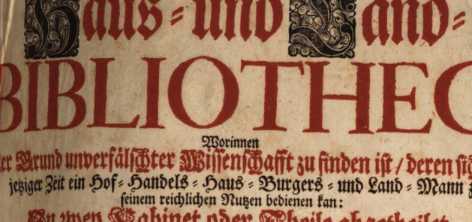 Haus- und Land-
BIBLIOTHEC
Worinnen
der Grund unverfälschter Wissenschafft zu finden ist / deren si
jetziger Zeit ein Hof- Handels- Haus- Burgers- und Land-Mann
seinem reichlichen Nutzen bedienen kan:
Cabinet oder Theile